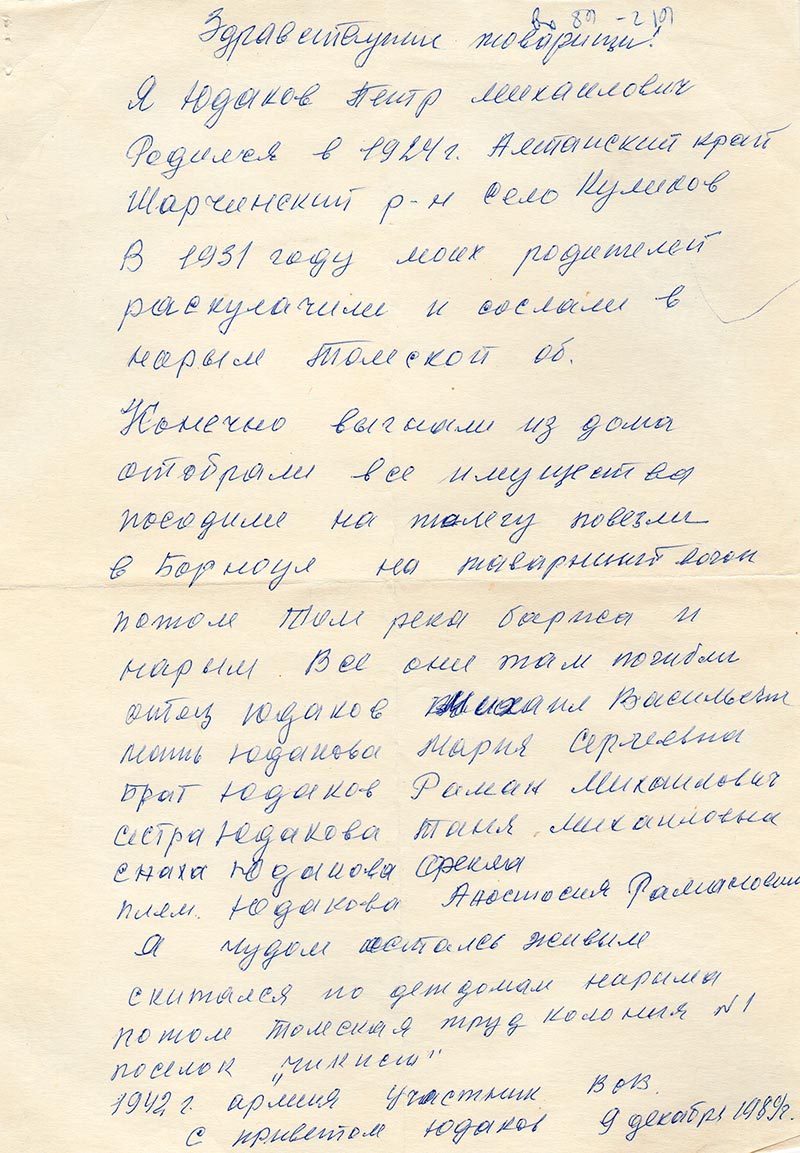 Во 89 - 2101
Здравствуйте товарищи!
Я Юдаков Петр Михаилович
Родился в 1924 г. Алтайский край
Шарчинский р-н село Куликов
В 1931 году моих родителей
раскулачили и сослали в
нарым Томской об.
Конечно выгнали из дома
отобрали все имущества
посодили на телегу повезли
в Борноул на таварный вогон
потом Том река баржа и
нарым Все они там погибли
отец Юдаков Михаил Васильевич
мать Юдакова Мария Сергеевна
брат Юдаков Раман Михаилович
сестра Юдакова Таня Михаиловна
снаха Юдакова Фекла
плем. Юдакова Аностосия Рамановна
Я чудом осталсь живым
скитался по детдомам нарыма
потом Томская труд колония N1
поселок „Чикист"
1942 г. армия участник ВоВ.
с приветом Юдаков 9 декабря 1989г.